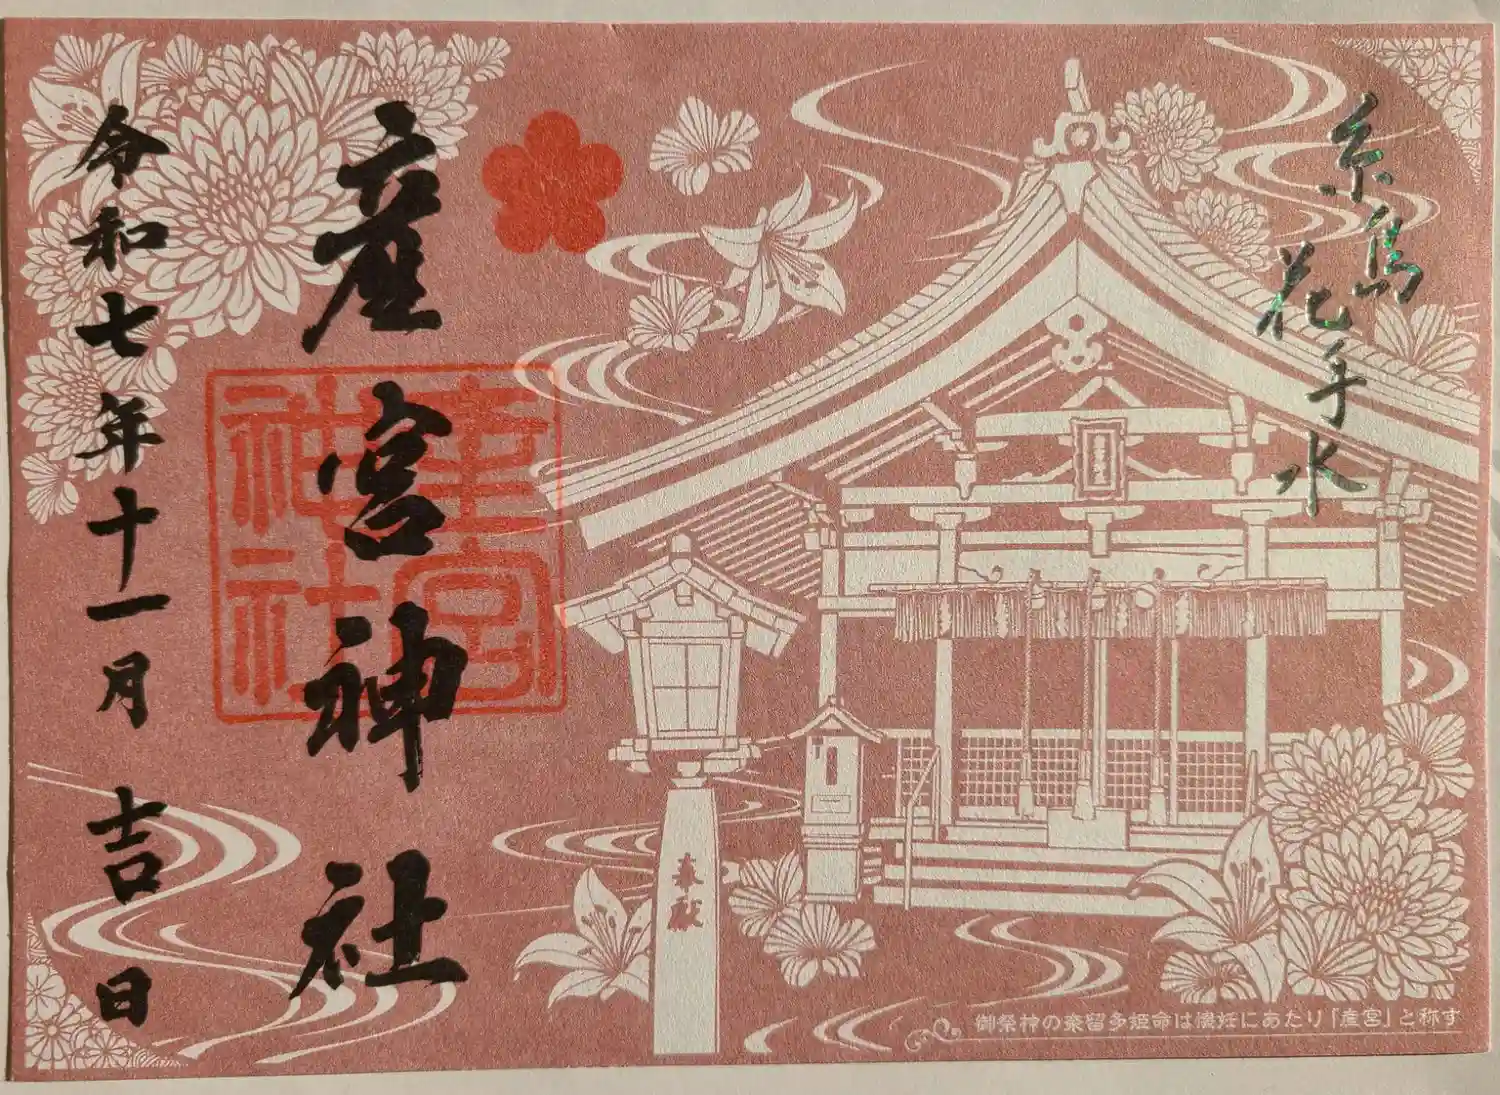 糸島
花手水
産宮神社
産宮神社
令和七年十一月吉日
奉献
御祭神の奈留多姫命は懐妊にあたり「産宮」と称す